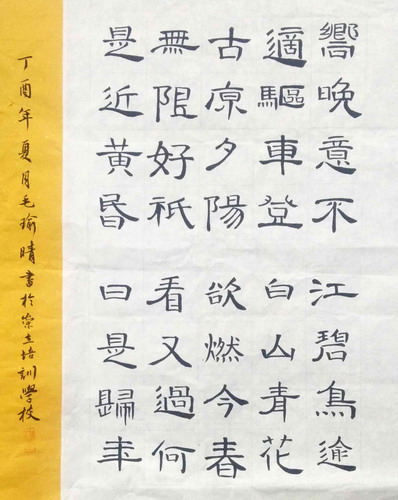 嚮晚意不
適驅車登
古原夕陽
無限好祇
是近黃昏
江碧鳥逾
白山青花
欲燃今春
看又過何
日是歸年
丁酉年夏月毛瑜晴書於崇立培訓學校